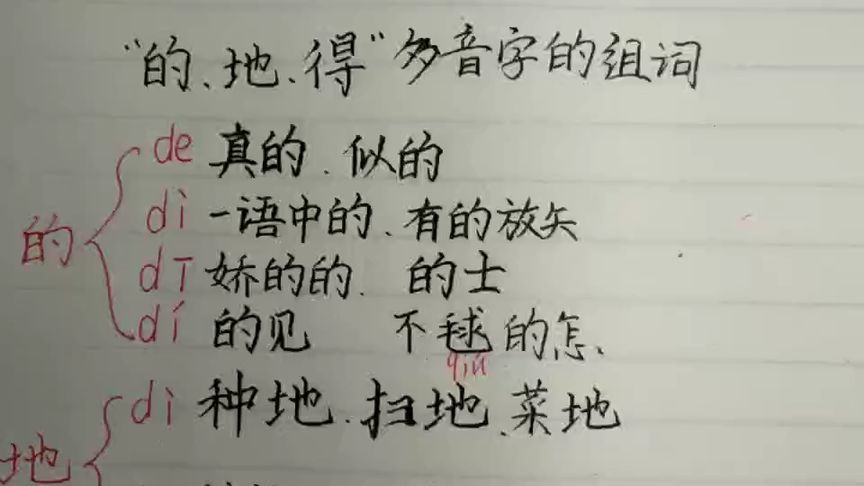 “的、地、得”多音字的组词
的
de 真的.似的
dì 一语中的、有的放矢
dī 娇的的. 的士
dí 的见 不毬的怎、
qiú
地
dì 种地.扫地、菜地